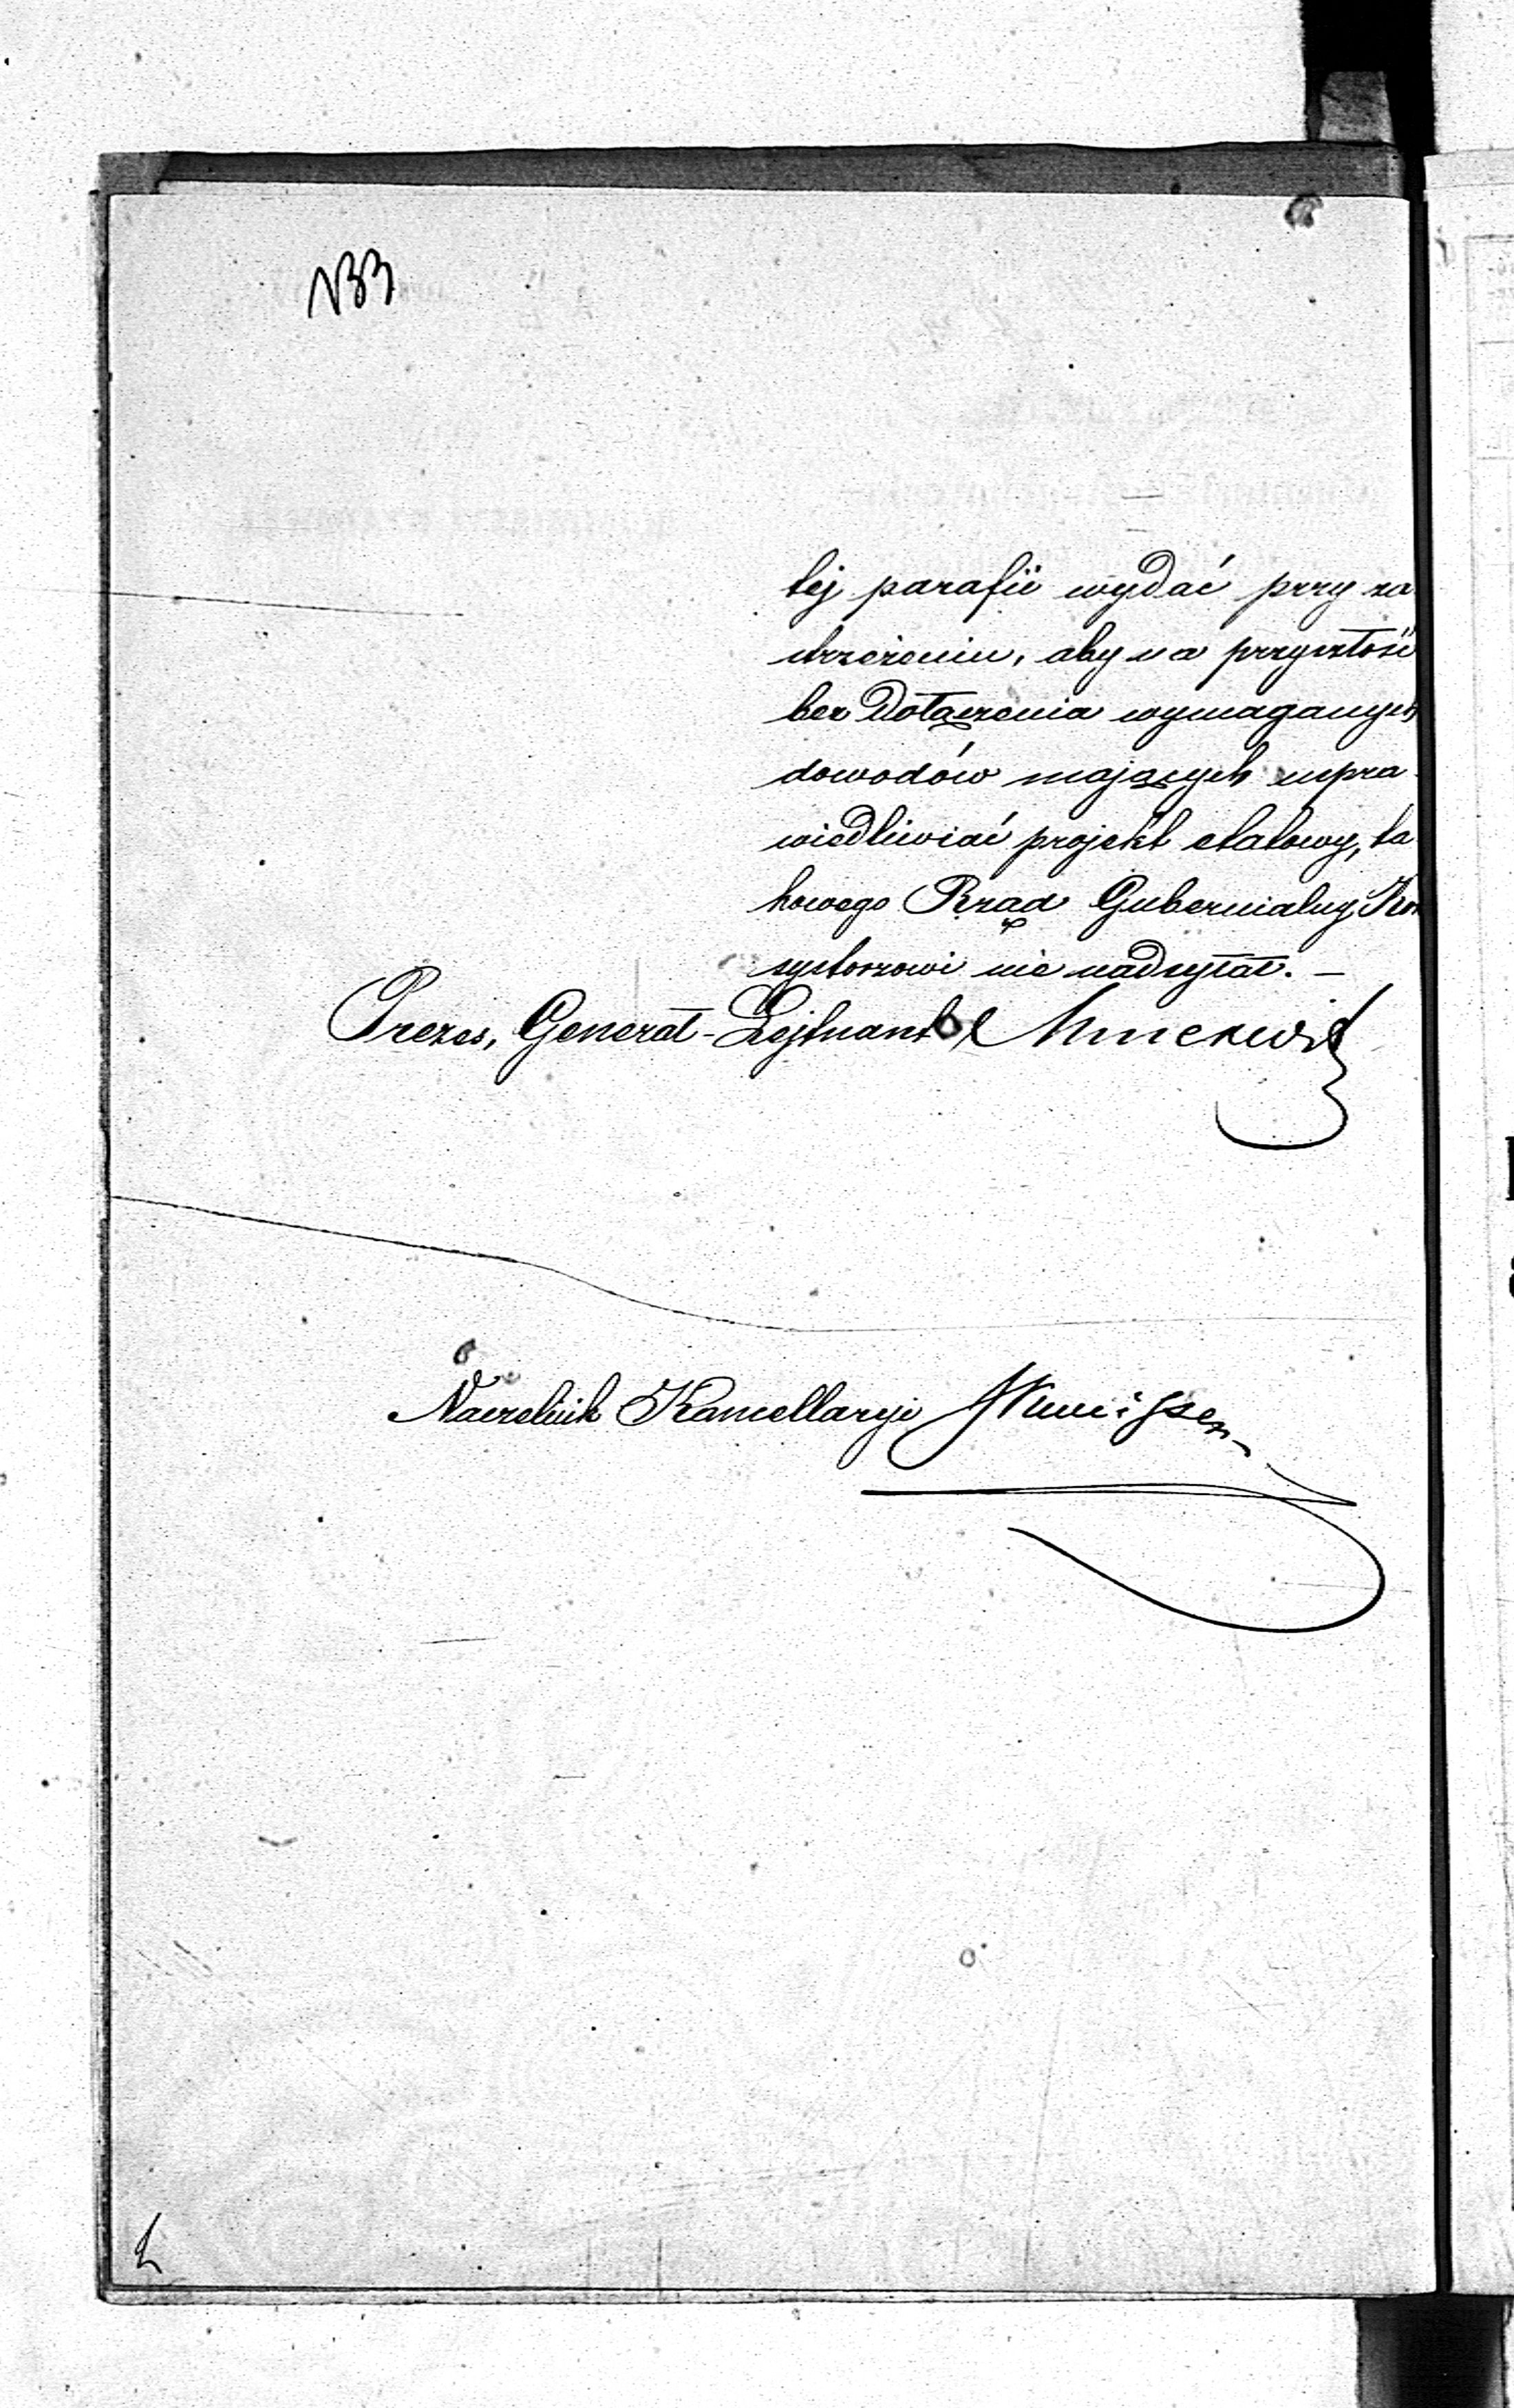 133
tej parafii wydać przy za
strzeżeniu, aby na przyszłość
bez dołączenia wymaganych
dowodów mających uspra
wiedliwiać projekt etatowy, ta
kowego Rząd Gubernialny Kon
systorzowi nie nadsyłał. —
Prezes, Generał-Lejtnant
Naczelnik Kancellaryi